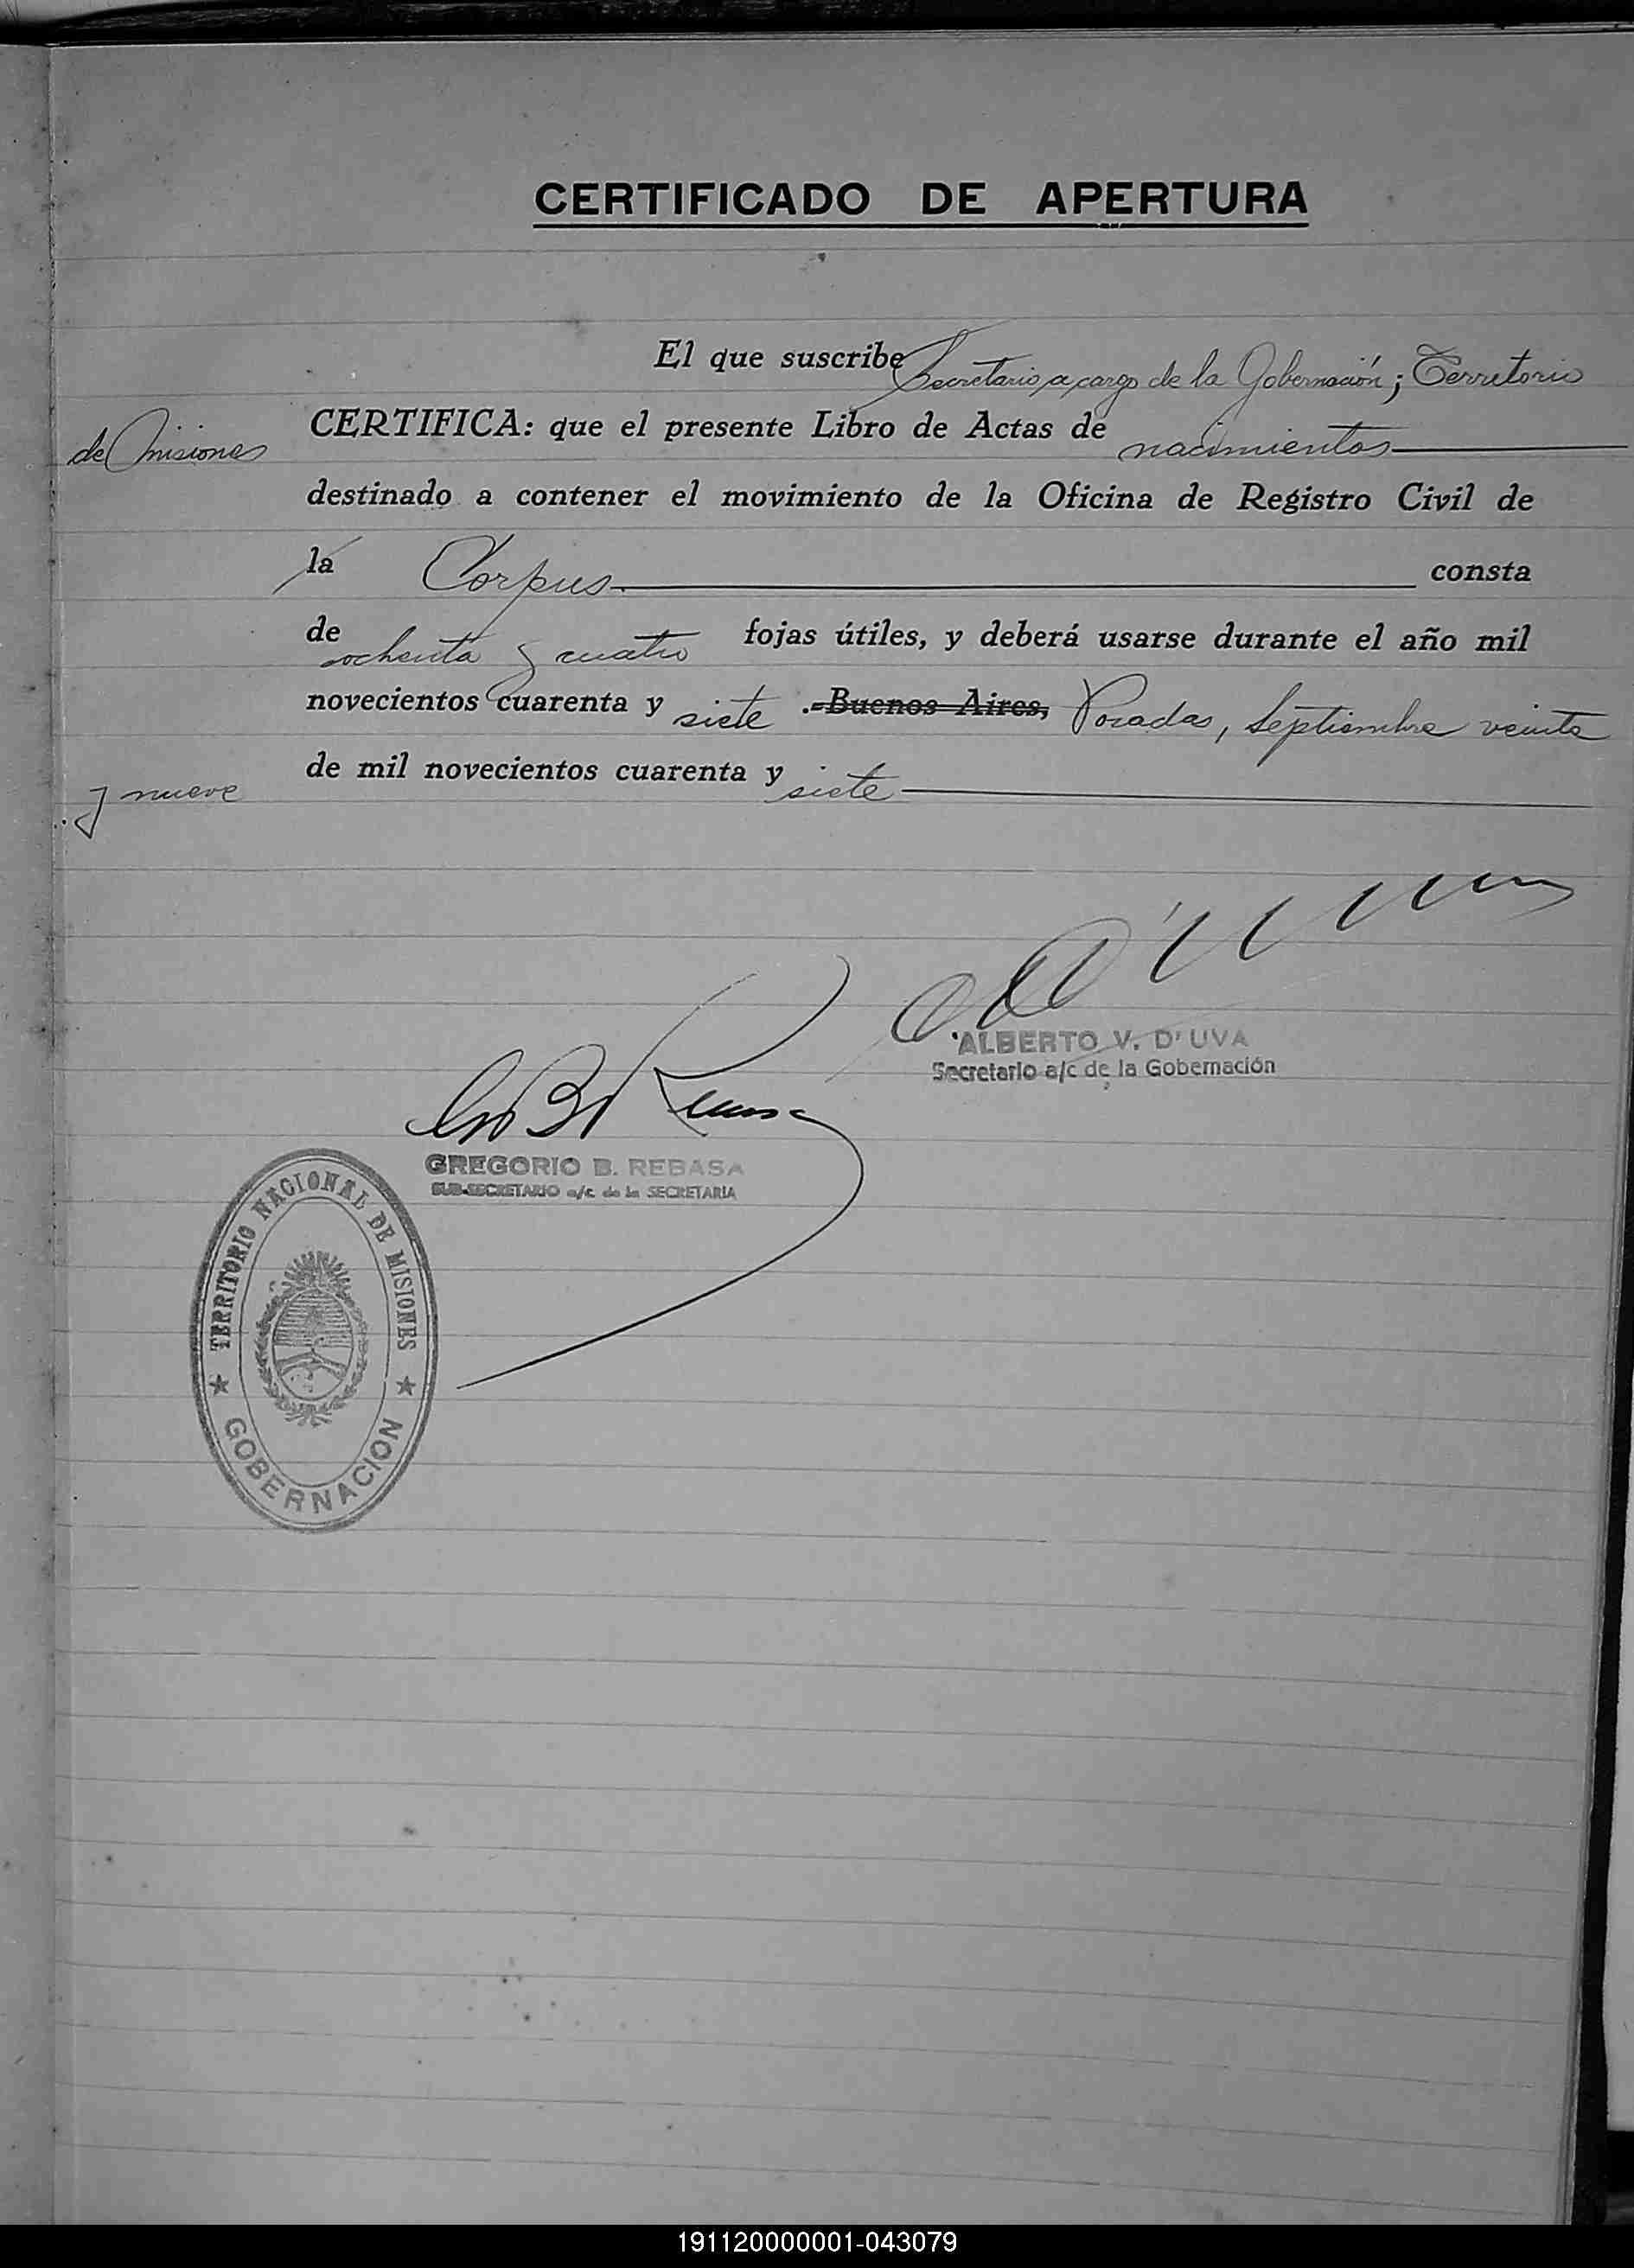 CERTIFICADO DE APERTURA
El que suscribe Secretario a cargo de la Gobernación; Territorio
de Misiones CERTIFICA: que el presente Libro de Actas de nacimientos
destinado a contener el movimiento de la Oficina de Registro Civil de
la Corpus. consta
de ochenta y cuatro fojas útiles, y deberá usarse durante el año mil
novecientos cuarenta y siete .-Buenos Aires, Posadas, Septiembre veinte
y nueve de mil novecientos cuarenta y siete
ALBERTO V. D'UVA
Secretario a/c de la Gobernación
GREGORIO B. REBASA
SUB-SECRETARIO a/c. de la SECRETARIA
TERRITORIO NACIONAL DE MISIONES
GOBERNACION
191120000001-043079